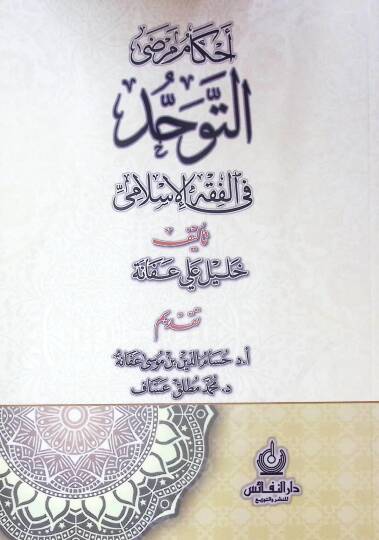 أحكام مرضى
التَّوَحُّد
في الفقه الإسلاميّ
تأليف
خليل علي عفانة
تقديم
أ.د حسام الدين بن موسى عفانة
د. محمد مطلق عساف
دار النفائس
للنشر والتوزيع